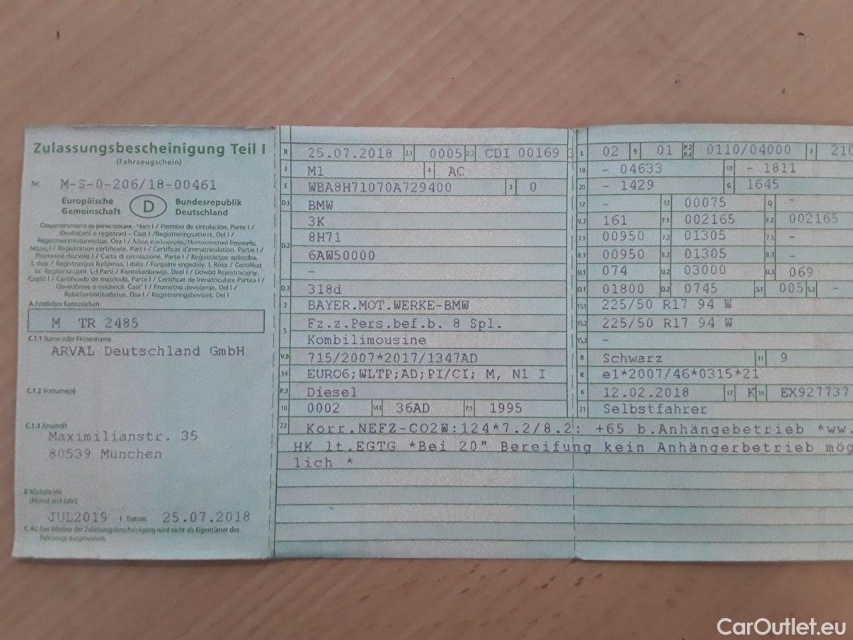 Zulassungsbescheinigung Teil I
(Fahrzeugschein)
Nr. M-S-0-206/18-00461
Europäische Gemeinschaft
D
Bundesrepublik Deutschland
A Amtliches Kennzeichen
M TR 2485
C.1.1 Name oder Firmenname
ARVAL Deutschland GmbH
C.1.2 Vorname(n)
C.1.3 Anschrift
Maximilianstr. 35
80539 München
Nächste HU
(Monat und Jahr)
JUL2019 I Datum: 25.07.2018
B 25.07.2018 2.1 0005 2.2 CDI 00169
J M1 4 AC
E WBA8H71070A729400 3 0
D.1 BMW
D.2 3K
8H71
6AW50000
-
D.3 318d
2 BAYER.MOT.WERKE-BMW
5 Fz.z.Pers.bef.b. 8 Spl.
Kombilimousine
V.9 715/2007*2017/1347AD
14 EURO6;WLTP;AD;PI/CI; M, N1 I
P.3 Diesel
10 0002 14.1 36AD P.1 1995
22 Korr.NEFZ-CO2W:124*7.2/8.2: +65 b.Anhängebetrieb *ww.
HK lt.EGTG *Bei 20" Bereifung kein Anhängerbetrieb mög
lich *
L 02 9 01 P.2 P.4 0110/04000 T 210
18 - 04633 19 - 1811
20 - 1429 G 1645
12 - 13 00075 Q -
V.7 161 F.1 002165 F.2 002165
7.1 00950 7.2 01305 7.3 -
8.1 00950 8.2 01305 8.3 -
U.1 074 U.2 03000 U.3 069
O.1 01800 O.2 0745 S.1 005 S.2 -
15.1 225/50 R17 94 W
15.2 225/50 R17 94 W
15.3 -
R Schwarz 11 9
K e1*2007/46*0315*21
6 12.02.2018 17 K 16 EX927737
21 Selbstfahrer
CarOutlet.eu